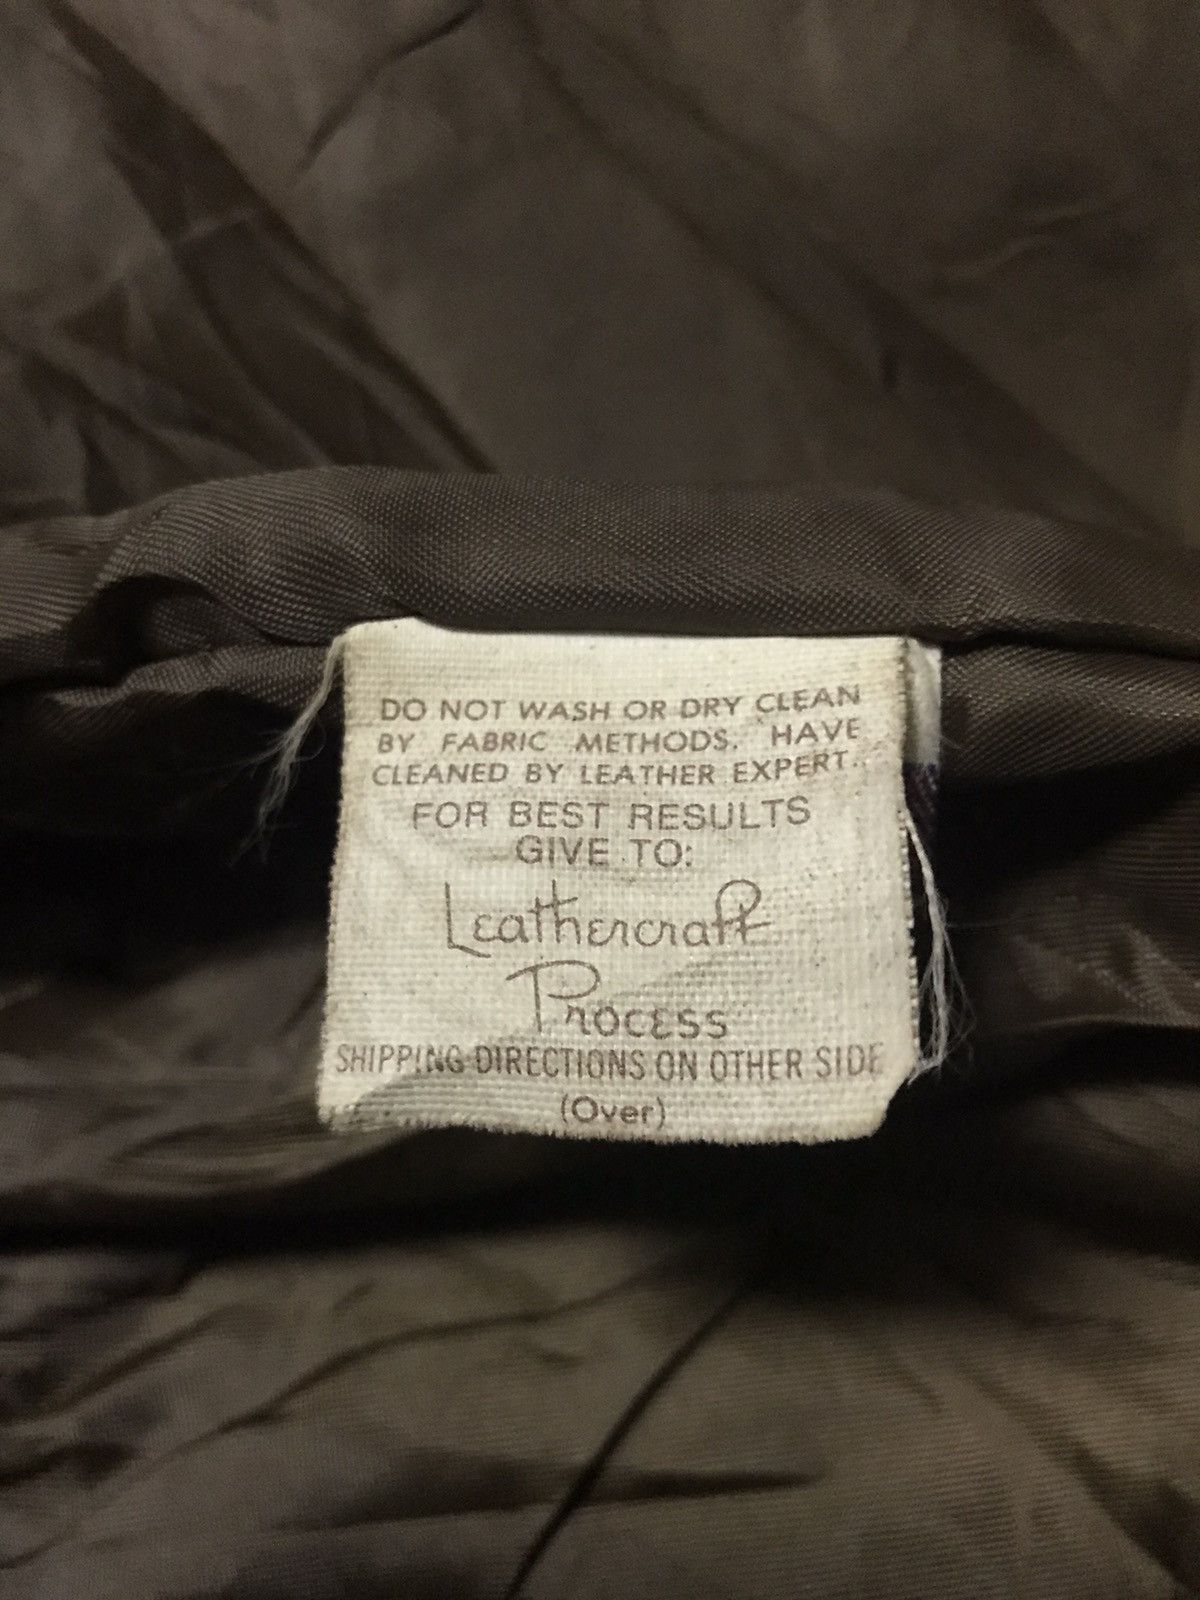 DO NOT WASH OR DRY CLEAN
BY FABRIC METHODS. HAVE
CLEANED BY LEATHER EXPERT..
FOR BEST RESULTS
GIVE TO:
Leathercraft
Process
SHIPPING DIRECTIONS ON OTHER SIDE
(Over)